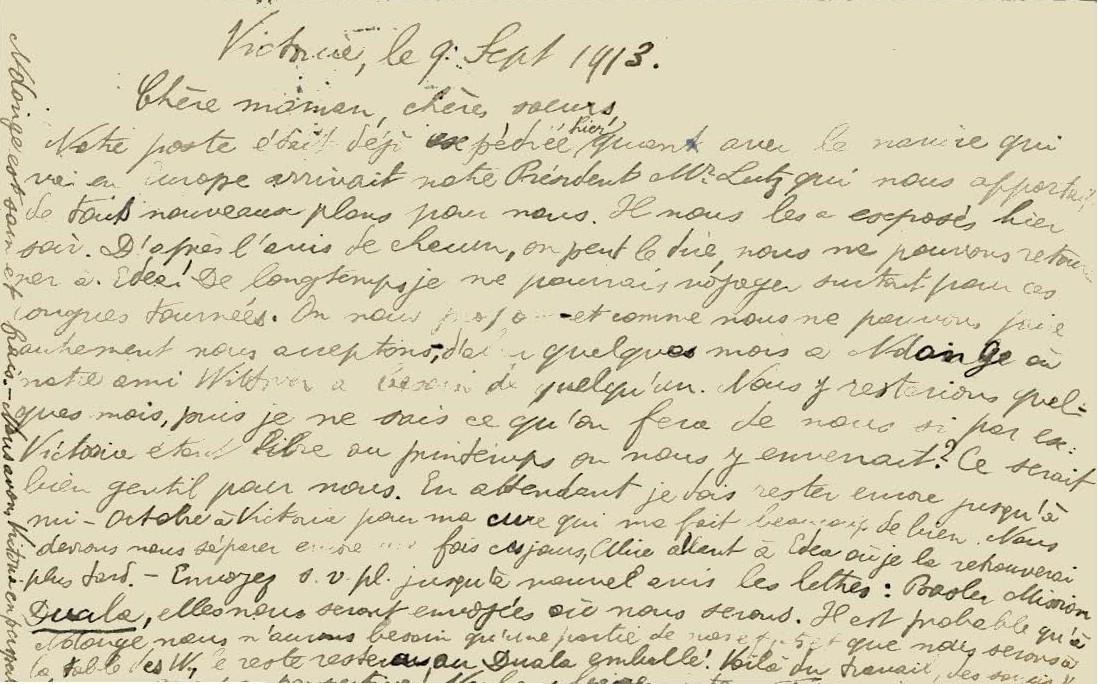 Victoria, le 9. Sept 1913.
Chère maman, chères soeurs,
Notre poste était déjà expédiée hier, quant avec le navire qui
va en Europe arrivait notre Président Mr. Lutz qui nous apportait
de tout nouveaux plans pour nous. Il nous les a exposés hier
soir. D'après l'avis de chacun, on peut le dire, nous ne pouvons retour-
ner à Edéa! De longtemps je ne pourrais voyager surtout pour ces
longues tournées. On nous et comme nous ne pouvons faire
autrement nous acceptons, quelques mois à Ndonge où
notre ami Wittwer a besoin de quelqu'un. Nous y resterions quel-
ques mois, puis je ne sais ce qu'on fera de nous si par ex:
Victoria étant libre au printemps on nous y envenait? Ce serait
bien gentil pour nous. En attendant je dois rester encore jusqu'à
mi-Octobre à Victoria pour ma cure qui me fait beaucoup de bien. Nous
devons nous séparer encore une fois ces jours, Alice allant à Edea où je la retrouverai
plus tard. - Envoyez s.v.pl. jusqu'à nouvel avis les lettres: Basler Mission
Duala, elles nous seront envoyées où nous serons. Il est probable qu'à
Ndonge nous n'aurons besoin qu'une partie de nos et que nous serons à
la table des W, le reste restera au Duala emballé! Voilà du travail, des
Ndonge est sain et frais. - Nous avons